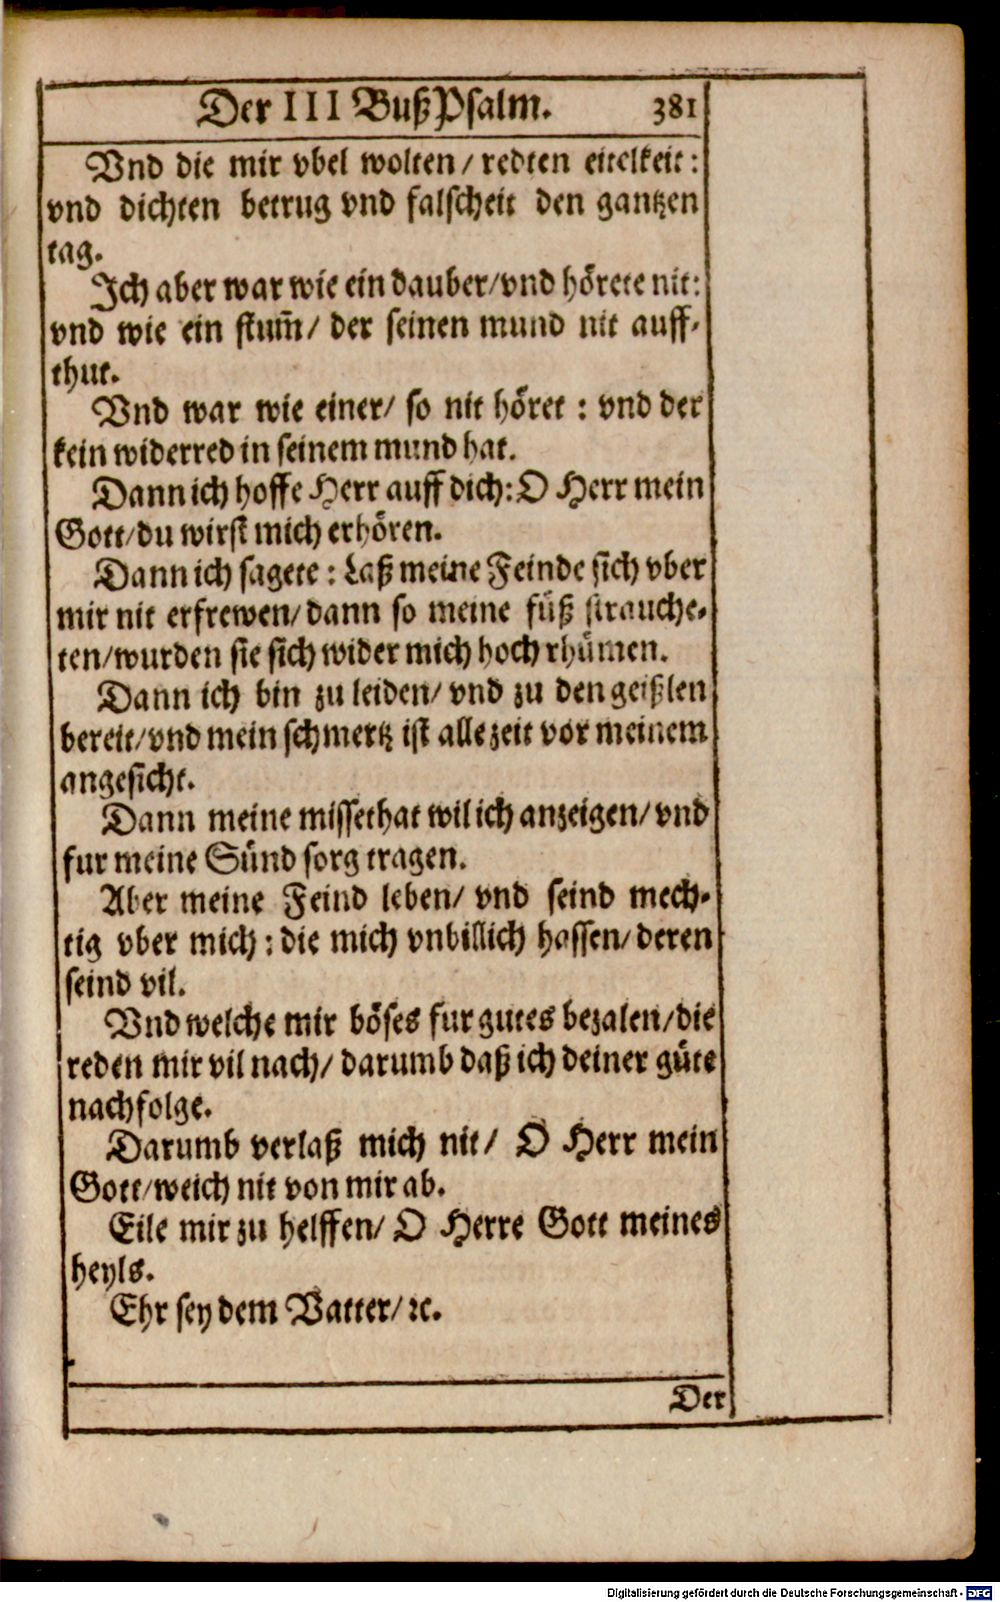 Der III BußPsalm. 381
Vnd die mir vbel wolten/ redten eitelkeit:
vnd dichten betrug vnd falscheit den gantzen
tag.
Ich aber war wie ein dauber/vnd hörete nit:
vnd wie ein stum̃/ der seinen mund nit auff-
thut.
Vnd war wie einer/ so nit höret : vnd der
kein widerred in seinem mund hat.
Dann ich hoffe Herr auff dich: O Herr mein
Gott/du wirst mich erhören.
Dann ich sagete : Laß meine Feinde sich vber
mir nit erfrewen/dann so meine füß strauche-
ten/wurden sie sich wider mich hoch rhümen.
Dann ich bin zu leiden/ vnd zu den geißlen
bereit/vnd mein schmertz ist alle zeit vor meinem
angesicht.
Dann meine missethat wil ich anzeigen/ vnd
fur meine Sünd sorg tragen.
Aber meine Feind leben/ vnd seind mech-
tig vber mich : die mich vnbillich hassen/ deren
seind vil.
Vnd welche mir böses fur gutes bezalen/die
reden mir vil nach/ darumb daß ich deiner güte
nachfolge.
Darumb verlaß mich nit/ O Herr mein
Gott/weich nit von mir ab.
Eile mir zu helffen/ O Herre Gott meines
heyls.
Ehr sey dem Vatter/ ꝛc.
Der
Digitalisierung gefördert durch die Deutsche Forschungsgemeinschaft - DFG